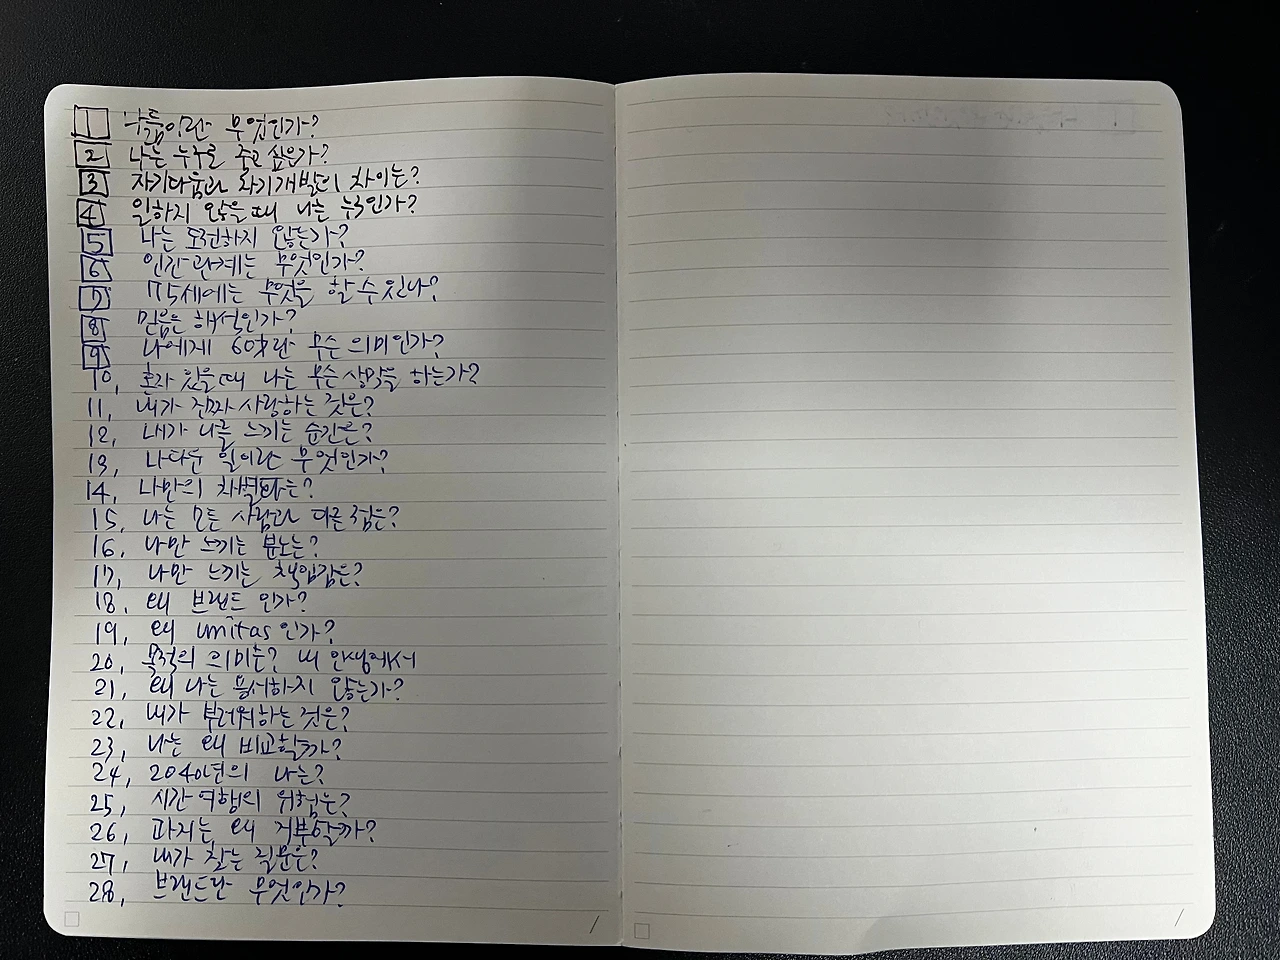 1 나다움이란 무엇인가?
2 나는 누구를 돕고 싶은가?
3 자기다움과 자기개발의 차이는?
4 일하지 않을 때 나는 누구인가?
5 나는 도전하지 않는가?
6 인간관계는 무엇인가?
7 75세에는 무엇을 할 수 있나?
8 믿음은 해석인가?
9 나에게 60대란 무슨 의미인가?
10, 혼자 있을 때 나는 무슨 생각을 하는가?
11, 내가 진짜 사랑하는 것은?
12, 내가 나를 느끼는 순간은?
13, 나다운 일이란 무엇인가?
14, 나만의 차별화는?
15, 나는 모든 사람과 다른 점은?
16, 나만 느끼는 분노는?
17, 나만 느끼는 책임감은?
18, 왜 브랜드 인가?
19, 왜 unitas 인가?
20, 목적의 의미는? 내 인생에서
21, 왜 나는 용서하지 않는가?
22, 내가 부러워하는 것은?
23, 나는 왜 비교할까?
24, 2040년의 나는?
25, 시간 여행의 위험은?
26, 과거는 왜 거부할까?
27, 내가 찾는 질문은?
28, 브랜드란 무엇인가?